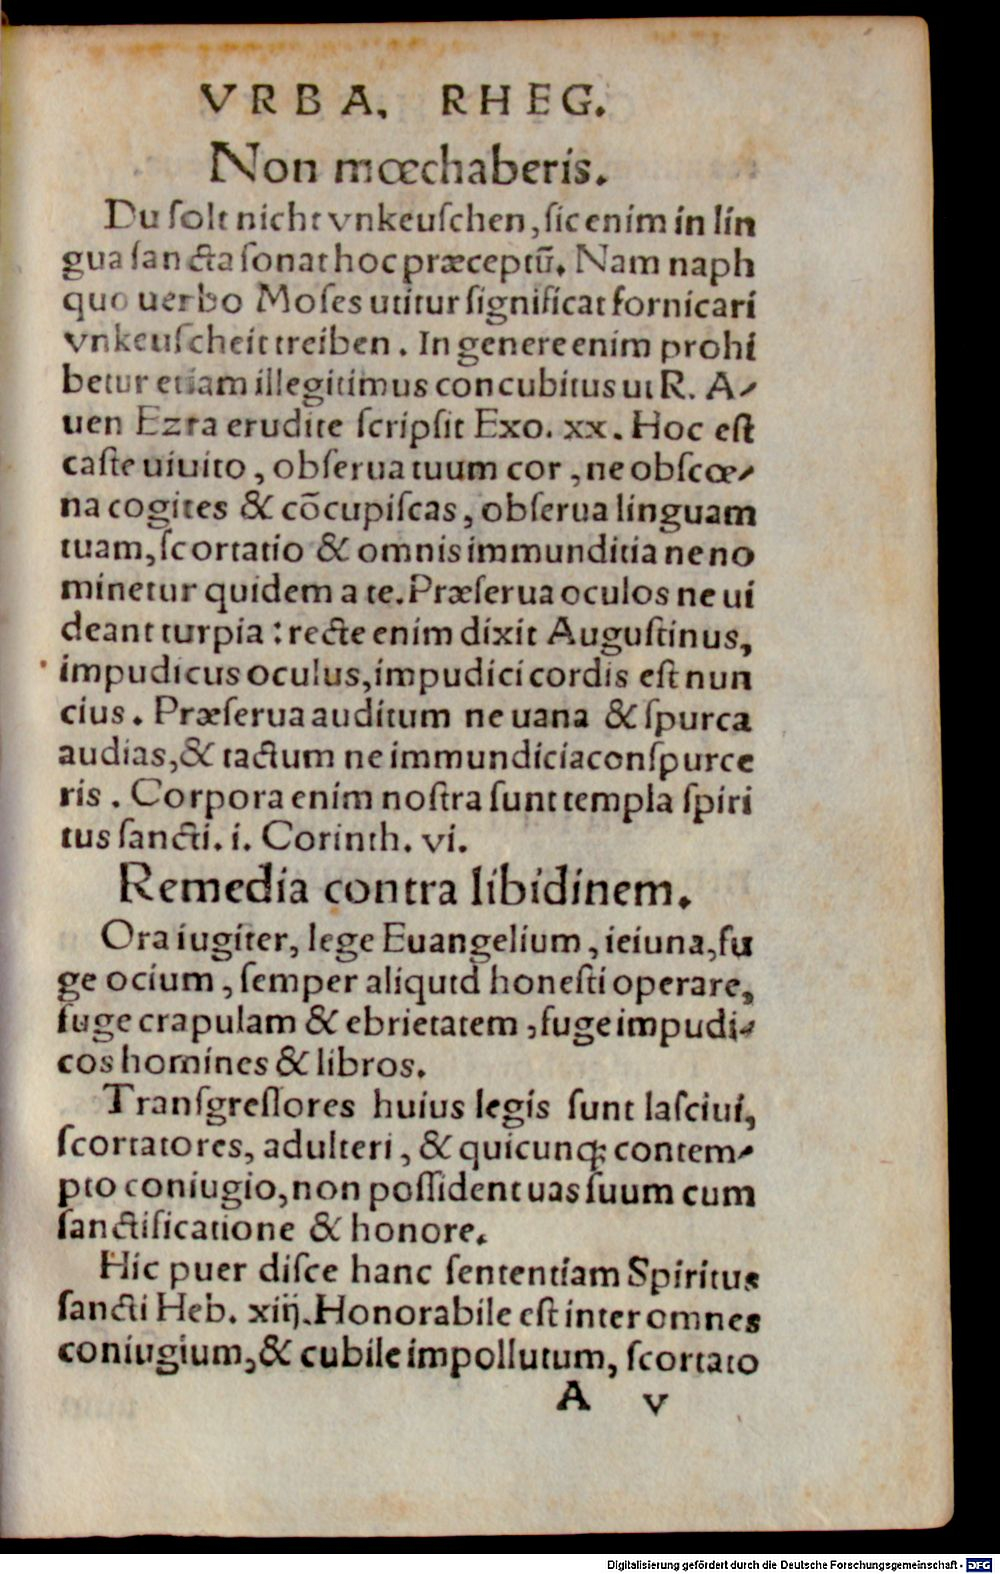 VRBA. RHEG.
Non mœchaberis.
Du ſolt nicht vnkeuſchen, ſic enim in lin
gua ſancta ſonat hoc præceptũ. Nam naph
quo uerbo Moſes utitur ſignificat fornicari
vnkeuſcheit treiben. In genere enim prohi
betur etiam illegitimus concubitus ut R. A-
uen Ezra erudite ſcripſit Exo. xx. Hoc eſt
caſte uiuito, obſerua tuum cor, ne obſcœ-
na cogites & cõcupiſcas, obſerua linguam
tuam, ſcortatio & omnis immunditia ne no
minetur quidem a te. Præſerua oculos ne ui
deant turpia: recte enim dixit Auguſtinus,
impudicus oculus, impudici cordis eſt nun
cius. Præſerua auditum ne uana & ſpurca
audias, & tactum ne immundicia conſpurce
ris. Corpora enim noſtra ſunt templa ſpiri
tus ſancti. i. Corinth. vi.
Remedia contra libidinem.
Ora iugiter, lege Euangelium, ieiuna, fu
ge ocium, ſemper aliqutd honeſti operare,
fuge crapulam & ebrietatem, fuge impudi-
cos homines & libros.
Tranſgreſſores huius legis ſunt laſciui,
ſcortatores, adulteri, & quicunqꝫ contem-
pto coniugio, non poſſident uas ſuum cum
ſanctificatione & honore.
Hic puer diſce hanc ſententiam Spiritus
ſancti Heb. xiij. Honorabile eſt inter omnes
coniugium, & cubile impollutum, ſcortato
A v
Digitalisierung gefördert durch die Deutsche Forschungsgemeinschaft - DFG